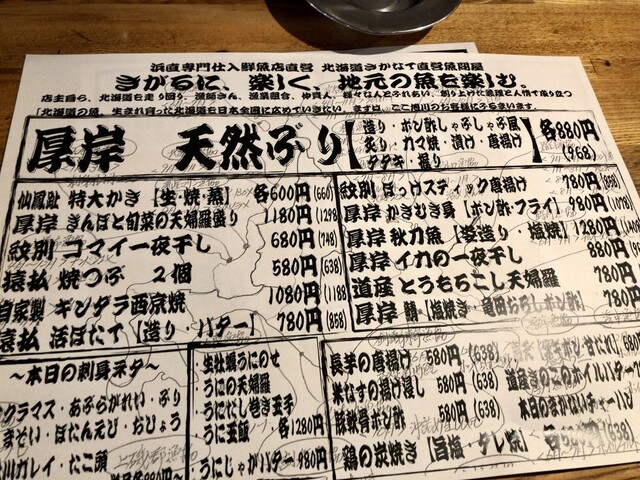 浜直専門仕入鮮魚店直営 北海道さかなて直営魚問屋
きがるに、楽しく、地元の魚を楽しむ。
店主自ら、北海道を走り回り、漁師さん、漁業組合、仲買人、様々なんとふれあい、創り上げた義理と人情で成り立つ
「北海道の魚、生まれ育った北海道を日本全国に広めていきたい、まずは、ここ旭川のお客様にうまいます。
厚岸 天然ぶり
【造り・ポン酢しゃぶしゃぶ風
炙り・カマ焼・漬け・唐揚げ
タタキ・握り
各880円
(968)
仙鳳趾 特大かき【生・焼・蒸】 各600円(660)
厚岸 きんぽと旬菜の天婦羅盛り 1180円(1298)
紋別 コマイ一夜干し 680円(748)
猿払 焼つぶ 2個 580円(638)
自家製 ギンダラ西京焼 1080円(1188)
猿払 活ほたて【造り・バター】 780円(858)
紋別 ほっけスティック唐揚げ 780円(858)
厚岸 かきむき身【ポン酢・フライ】 980円
厚岸 秋刀魚【姿造り 塩焼】 1280円
厚岸 イカの一夜干し 880円
道産 とうもろこし天婦羅 780円
厚岸 鯖【塩焼き・竜田おろしポン酢】 780円
～本日の刺身ネタ～
クラマス・あぶらがれい・ぶり
まそい・ぼたんえび・おひょう
川ガレイ・たこ頭
生牡蠣うにのせ
うにの天婦羅
うにだし巻き玉子
うに玉飯 各1280円
うにじゃがバター 980円
長芋の唐揚げ 580円(638)
米なすの揚げ浸し 580円(638)
豚軟骨ポン酢 580円(638)
鶏の炭焼き【旨塩・タレ焼】
道産きのこのホイルバター
本日のまかないチャーハン